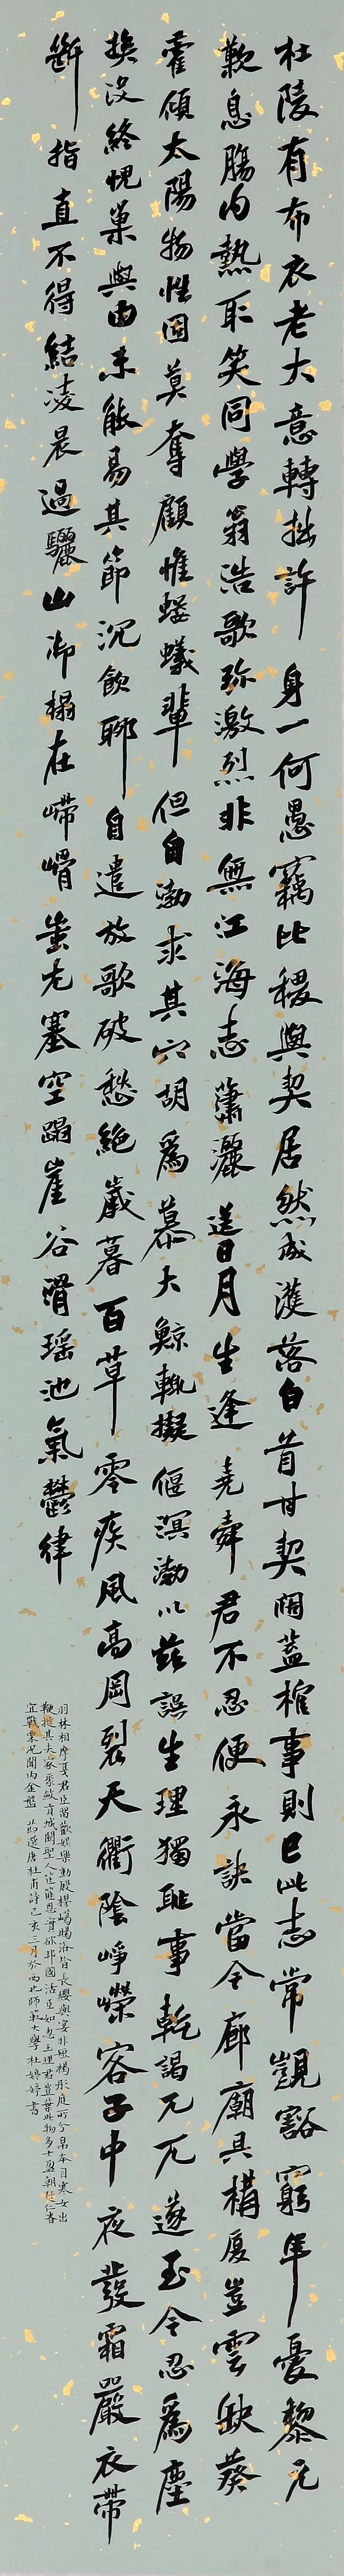 杜陵有布衣老大意轉拙許身一何愚竊比稷與契居然成濩落白首甘契闊蓋棺事則已此志常覬豁窮年憂黎元
歎息腸内熱取笑同學翁浩歌彌激烈非無江海志蕭灑送日月生逢堯舜君不忍便永訣當今廊廟具構厦豈雲缺葵
霍傾太陽物性固莫奪顧惟螻蟻輩但自渤求其穴胡爲慕大鯨輒擬偃溟渤以茲誤生理獨恥事乾謁兀兀遂至今忍爲塵
挨沒終愧巢與由未能易其節沉飲聊自遣放歌破愁絕歲暮百草零疾風高岡裂天衢陰崢嶸客子中夜發霜嚴衣帶
斷指直不得結凌晨過驪山御榻在嵽嵲蚩尤塞空蹋崖谷滑瑶池氣鬱律
羽林相摩戛君臣留歡娛樂動殷樛嶱賜浴皆長纓與宴非短褐彤庭所分帛本自寒女出
鞭撻其夫家聚斂貢城闕聖人筐篚恩實欲邦國活臣如忽至理君豈棄此物多士盈朝廷仁者
宜戰栗況聞内金盤 節選唐杜甫詩己亥三月於西北師範大學杜娉婷書